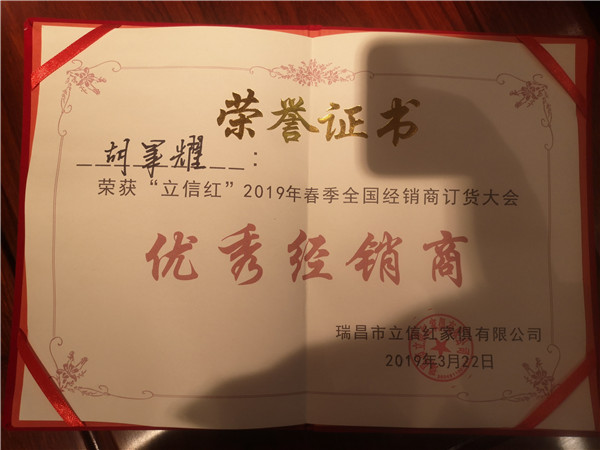 荣誉证书
胡军耀：
荣获“立信红”2019年春季全国经销商订货大会
优秀经销商
瑞昌市立信红家俱有限公司
2019年3月22日